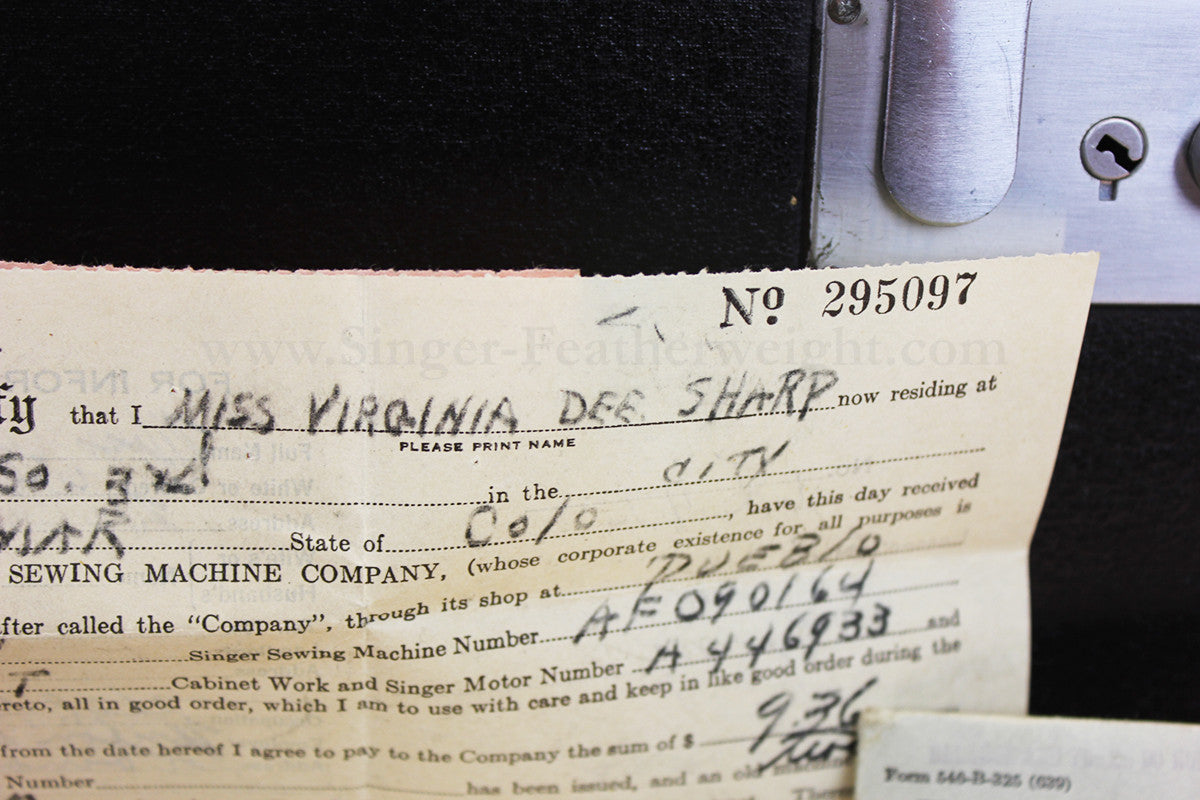 No 295097
www.Singer-Featherweight.com
fy that I MISS VIRGINIA DEE SHARP now residing at
PLEASE PRINT NAME
So. 3rd in the CITY
State of Colo, have this day received
SEWING MACHINE COMPANY, (whose corporate existence for all purposes is
after called the "Company", through its shop at PUEBLO
Singer Sewing Machine Number AF090164
T Cabinet Work and Singer Motor Number A446933 and
ereto, all in good order, which I am to use with care and keep in like good order during the
from the date hereof I agree to pay to the Company the sum of $ 9.36
Number has been issued, and an old machine
Form 546-B-225 (639)